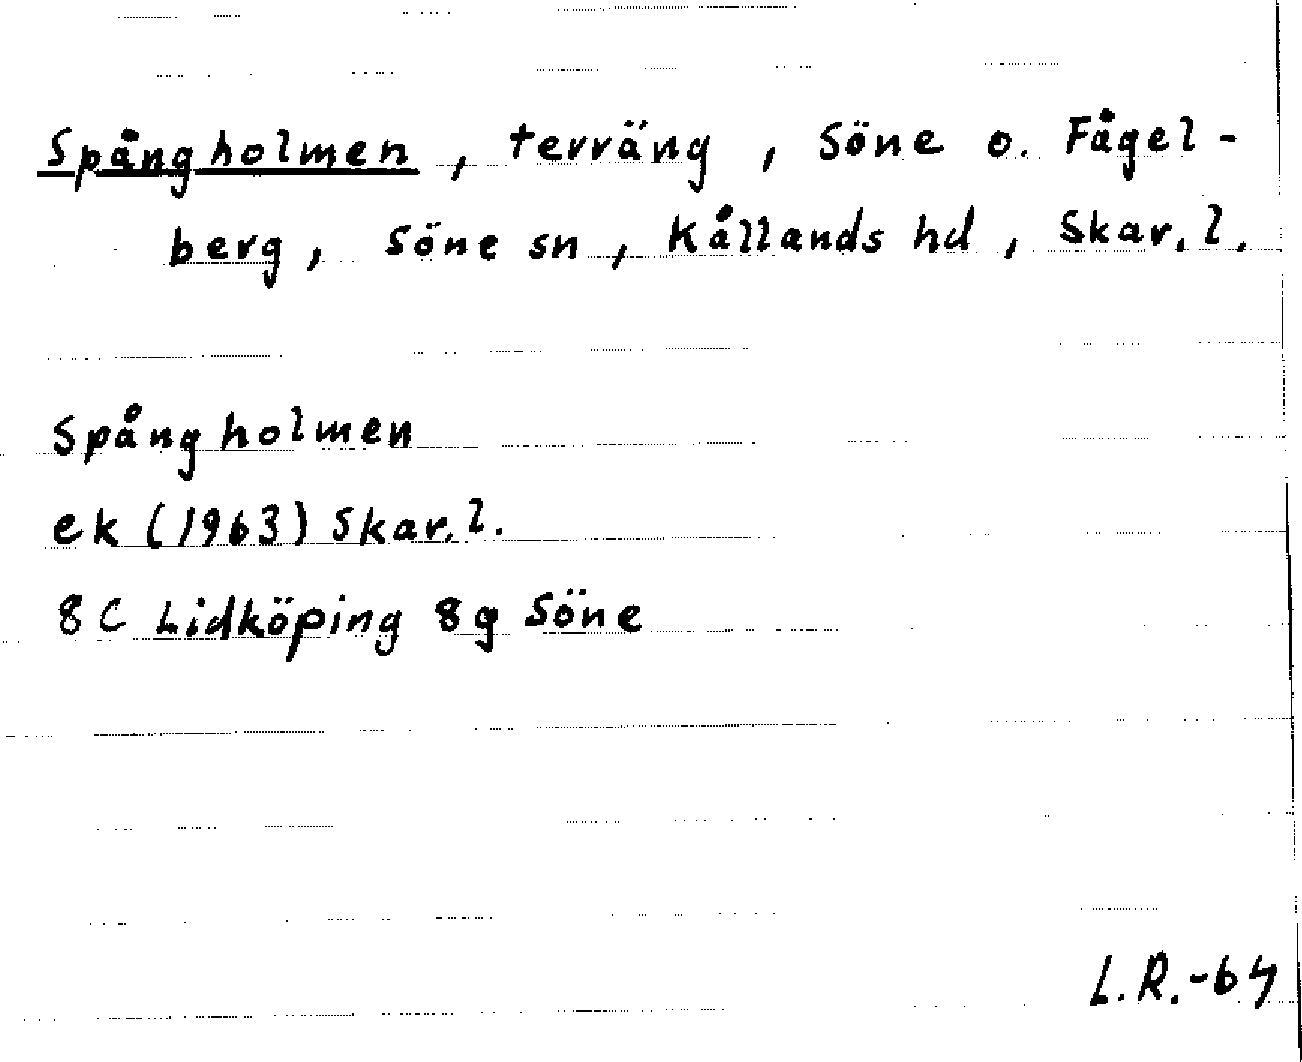 Spångholmen, terräng, Söne o. Fågel-
berg, Söne sn, Kållands hd, Skar.l.
Spångholmen
ek (1963) Skar.l.
8C Lidköping 8g Söne
L.R.-64